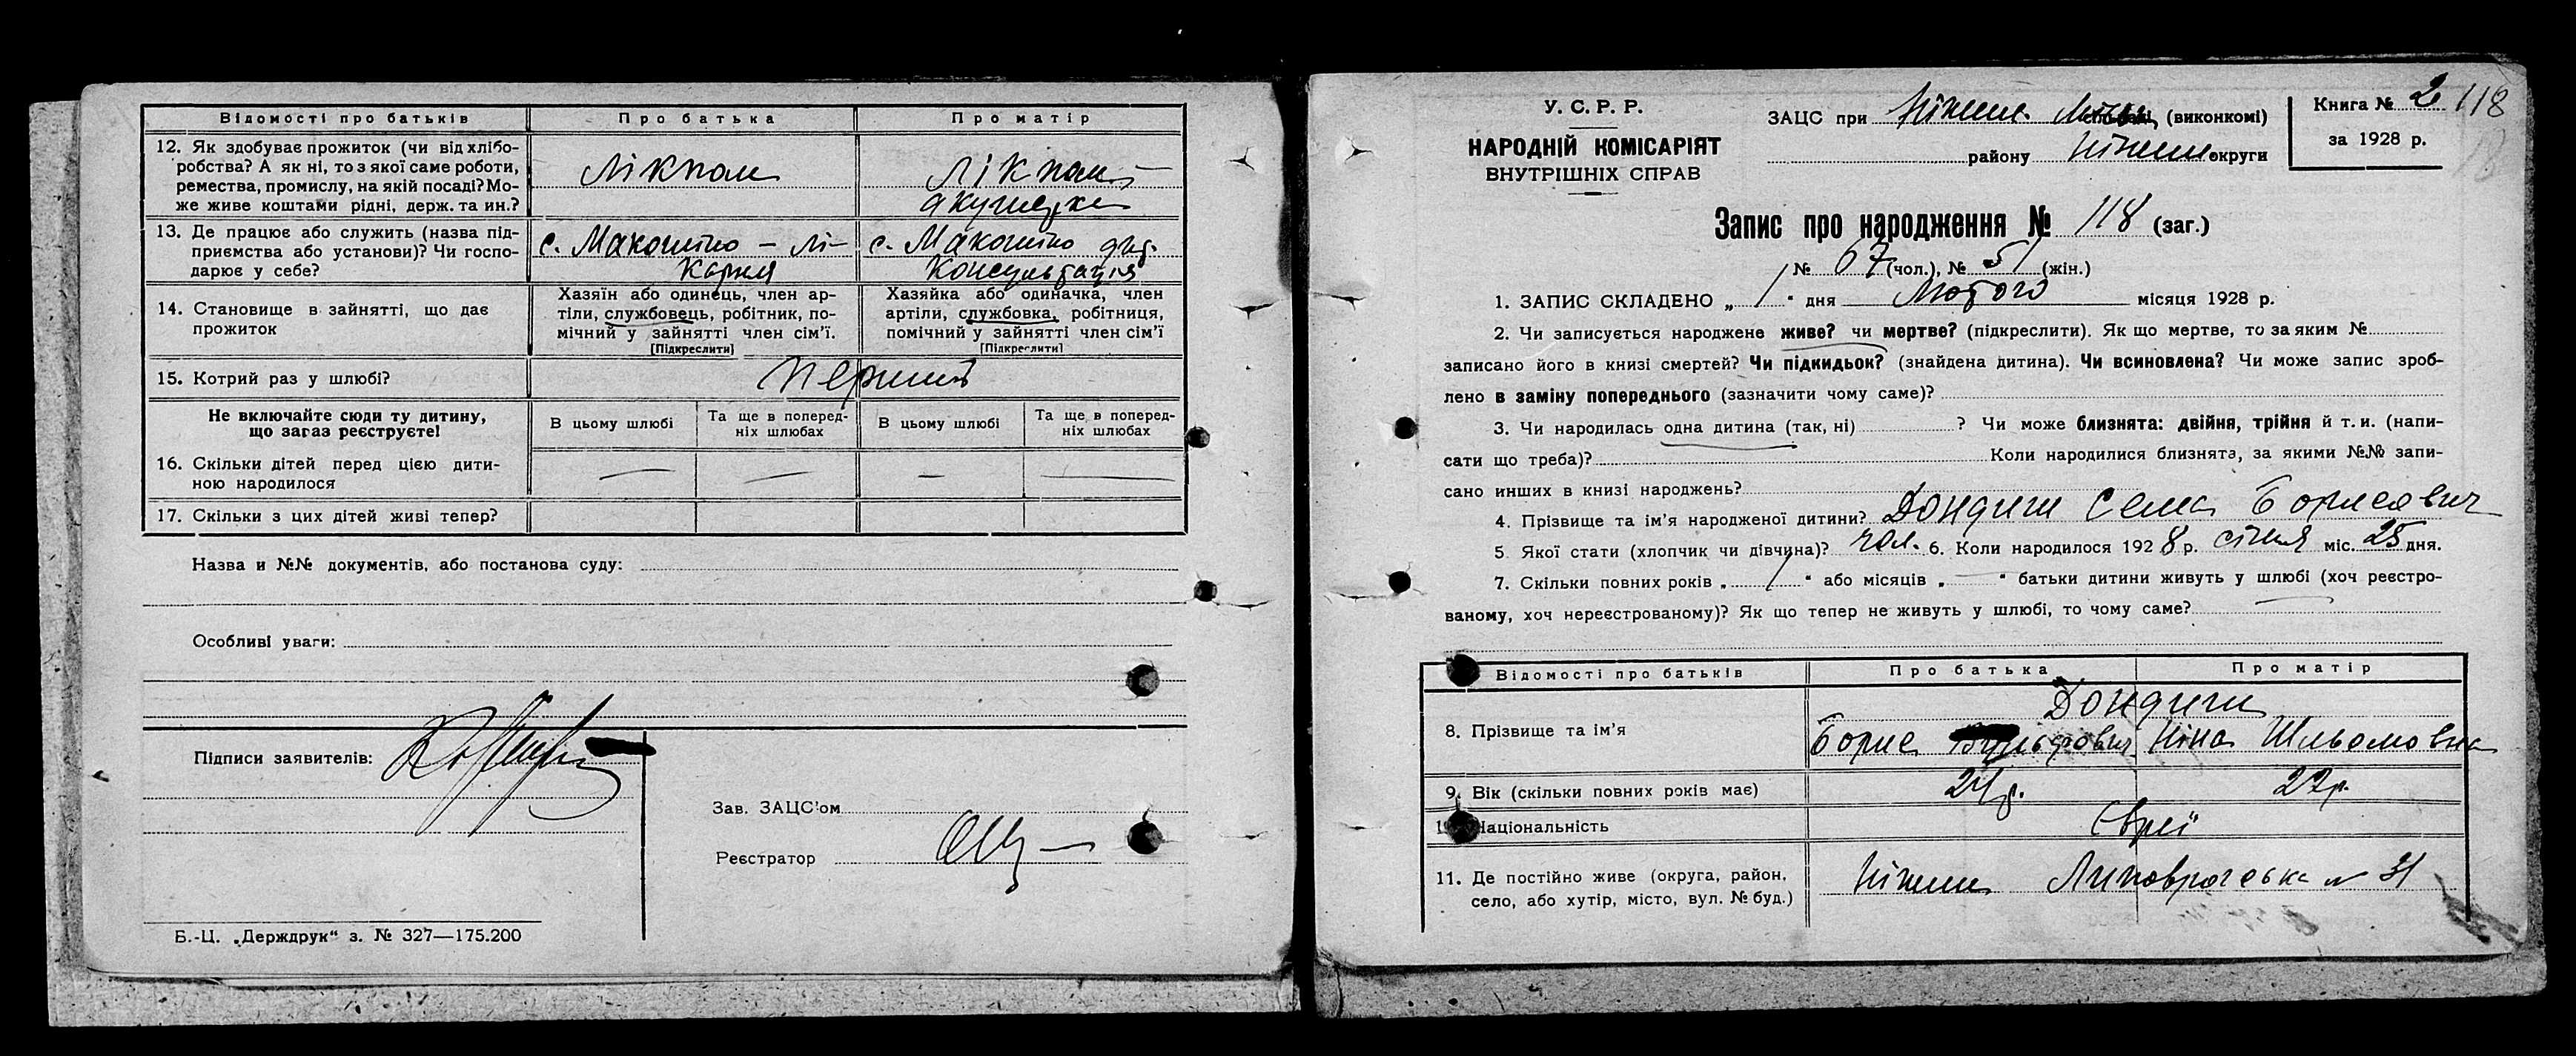 Відомості про батьків Про батька Про матір
12. Як здобуває прожиток (чи від хлібо-
робства? А як ні, то з якої саме роботи,
ремества, промислу, на якій посаді? Мо-
же живе коштами рідні, держ. та ин.?
Лікпом
Лікпом-
акушерка
13. Де працює або служить (назва під-
приємства або установи)? Чи госпо-
дарює у себе?
с. Макошіно – лі-
карня
с. Макошіно
консультація
14. Становище в зайнятті, що дає
прожиток
Хазяїн або одинець, член ар-
тіли, службовець, робітник, по-
мічний у зайнятті член сім'ї.
[Підкреслити]
Хазяйка або одиначка, член
артіли, службовка, робітниця,
помічний у зайнятті член сім'ї
[Підкреслити]
15. Котрий раз у шлюбі?
перший
Не включайте сюди ту дитину,
що зараз реєструєте!
В цьому шлюбі
Та ще в поперед-
ніх шлюбах
В цьому шлюбі
Та ще в поперед-
ніх шлюбах
16. Скільки дітей перед цією дити-
ною народилося
— — — —
17. Скільки з цих дітей живі тепер?
Назва и №№ документів, або постанова суду:
Особливі уваги:
Підписи заявителів:
Зав. ЗАЦС'ом
Реєстратор
Б.-Ц. „Держдрук" з. № 327—175.200
У. С. Р. Р.
НАРОДНІЙ КОМІСАРІЯТ
ВНУТРІШНІХ СПРАВ
ЗАЦС при Ніжин. (виконкомі)
району Ніжин округи
Книга № 2
за 1928 р.
118
Запис про народження № 118 (заг.)
№ 67 (чол.), № 51 (жін.)
1. ЗАПИС СКЛАДЕНО „ 1 " дня Лютого місяця 1928 р.
2. Чи записується народжене живе? чи мертве? (підкреслити). Як що мертве, то за яким №
записано його в книзі смертей? Чи підкидьок? (знайдена дитина). Чи всиновлена? Чи може запис зроб-
лено в заміну попереднього (зазначити чому саме)?
3. Чи народилась одна дитина (так, ні) ? Чи може близнята: двійня, трійня й т. и. (напи-
сати що треба)? Коли народилися близнята, за якими №№ запи-
сано инших в книзі народжень?
4. Прізвище та ім'я народженої дитини? Дондиги Сема Борисович
5. Якої стати (хлопчик чи дівчина)? чол. 6. Коли народилося 1928 р. січня міс. 25 дня.
7. Скільки повних років „ 1 " або місяців „ — " батьки дитини живуть у шлюбі (хоч реєстро-
ваному, хоч нереєстрованому)? Як що тепер не живуть у шлюбі, то чому саме?
Відомості про батьків Про батька Про матір
8. Прізвище та ім'я
Дондиги
Борис Вульфович Ніна Шльомовна
9. Вік (скільки повних років має) 24р. 22р.
Національність Євреї
11. Де постійно живе (округа, район,
село, або хутір, місто, вул. № буд.)
Ніжин № 31